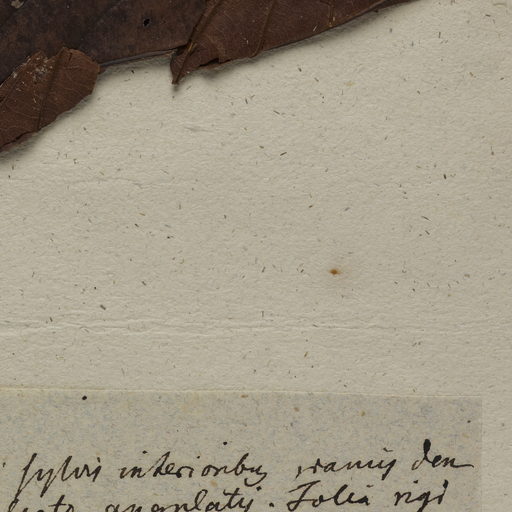 sylvis interioribus ramis den
angulatis. Folia rigi